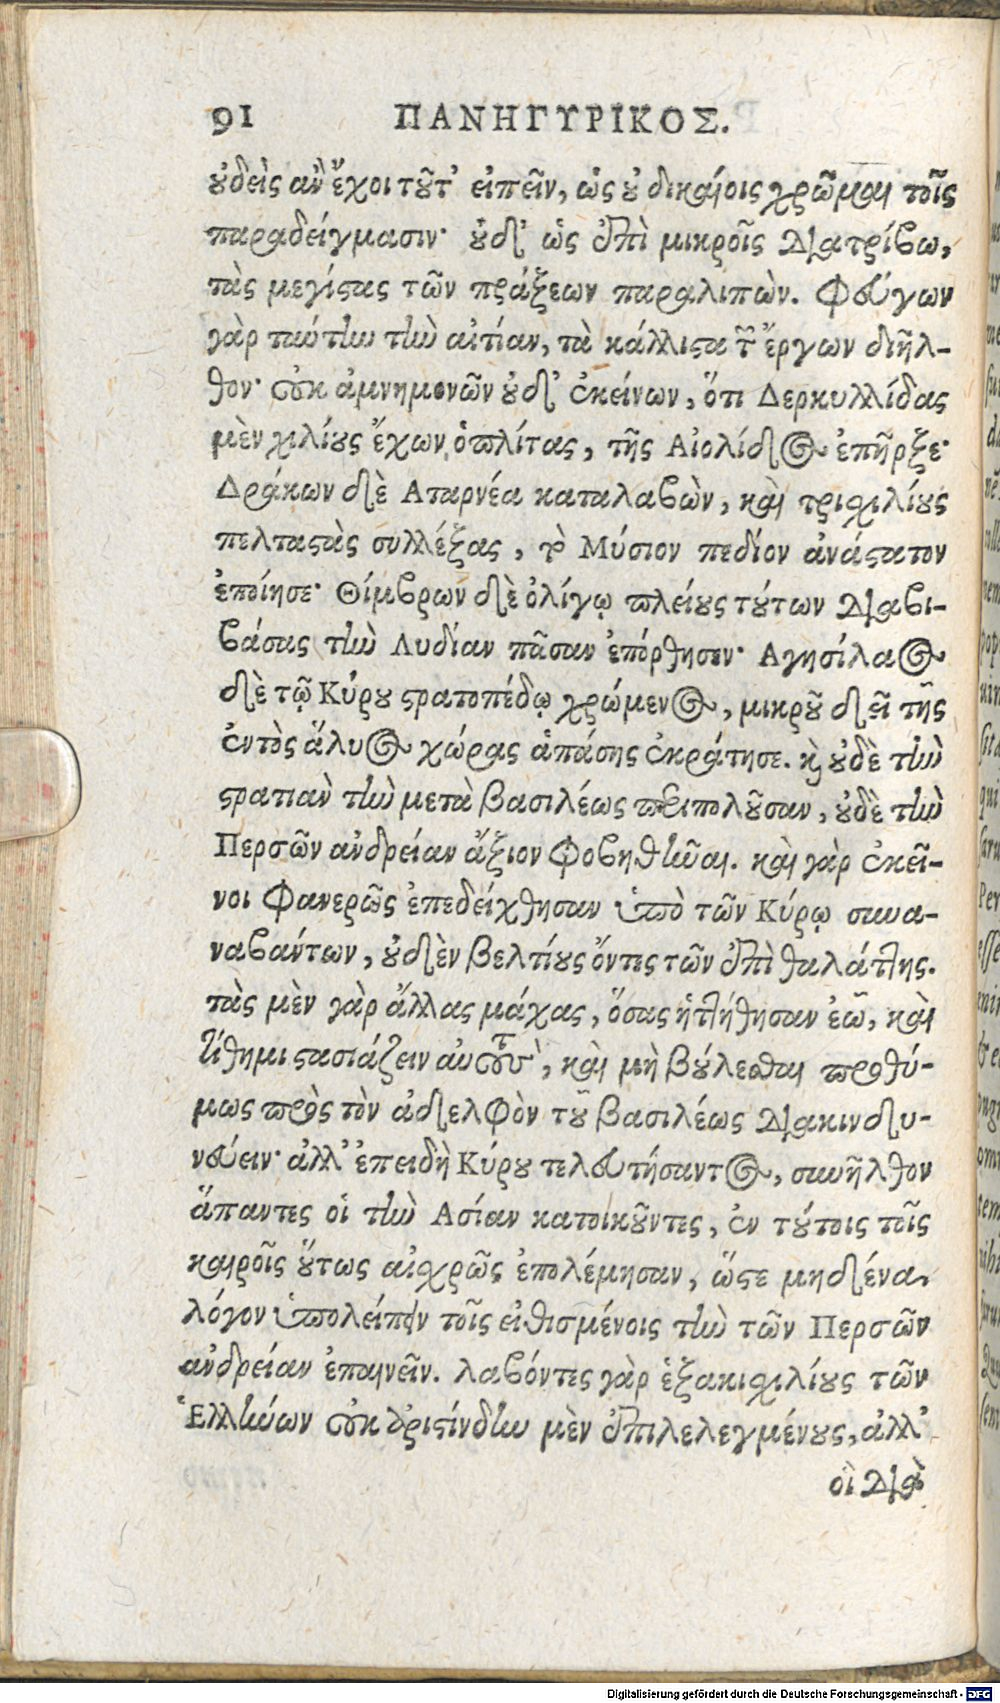 91 ΠΑΝΗΓΥΡΙΚΟΣ.
οὐδεὶς ἂν ἔχοι τοῦτ᾽ εἰπεῖν, ὡς οὐ δικαίοις χρῶμαι τοῖς
παραδείγμασιν· οὐδ᾽ ὡς ἐπὶ μικροῖς διατρίβω,
τὰς μεγίστας τῶν πράξεων παραλιπών. Φεύγων
γὰρ ταύτην τὴν αἰτίαν, τὰ κάλλιστα τῶν ἔργων διῆλ-
θον· οὐκ ἀμνημονῶν οὐδ᾽ ἐκείνων, ὅτι Δερκυλλίδας
μὲν χιλίους ἔχων ὁπλίτας, τῆς Αἰολίδος ἐπῆρξε·
Δράκων δὲ Αταρνέα καταλαβὼν, καὶ τρισχιλίους
πελταστὰς συλλέξας, τὸ Μύσιον πεδίον ἀνάστατον
ἐποίησε· Θίμβρων δὲ ὀλίγῳ πλείους τούτων διαβι-
βάσας τὴν Λυδίαν πᾶσαν ἐπόρθησεν· Αγησίλαος
δὲ τῷ Κύρου στρατοπέδῳ χρώμενος, μικροῦ δεῖ τῆς
ἐντὸς ἅλυος χώρας ἁπάσης ἐκράτησε. καὶ οὐδὲ τὴν
στρατιὰν τὴν μετὰ βασιλέως περιπολοῦσαν, οὐδὲ τὴν
Περσῶν ἀνδρείαν ἄξιον φοβηθῆναι. καὶ γὰρ ἐκεῖ-
νοι φανερῶς ἐπεδείχθησαν ὑπὸ τῶν Κύρῳ συνα-
ναβάντων, οὐδὲν βελτίους ὄντες τῶν ἐπὶ θαλάττης.
τὰς μὲν γὰρ ἄλλας μάχας, ὅσας ἡττήθησαν ἐῶ, καὶ
τίθημι στασιάζειν αὐτοὺς, καὶ μὴ βούλεσθαι προθύ-
μως πρὸς τὸν ἀδελφὸν τοῦ βασιλέως διακινδυ-
νεύειν· ἀλλ᾽ ἐπειδὴ Κύρου τελευτήσαντος, συνῆλθον
ἅπαντες οἱ τὴν Ασίαν κατοικοῦντες, ἐν τούτοις τοῖς
καιροῖς οὕτως αἰσχρῶς ἐπολέμησαν, ὥστε μηδένα
λόγον ὑπολείπειν τοῖς εἰθισμένοις τὴν τῶν Περσῶν
ἀνδρείαν ἐπαινεῖν. λαβόντες γὰρ ἑξακισχιλίους τῶν
Ἑλλήνων οὐκ ἀριστίνδην μὲν ἐπιλελεγμένους, ἀλλ᾽
οἳ διὰ
Digitalisierung gefördert durch die Deutsche Forschungsgemeinschaft - DFG